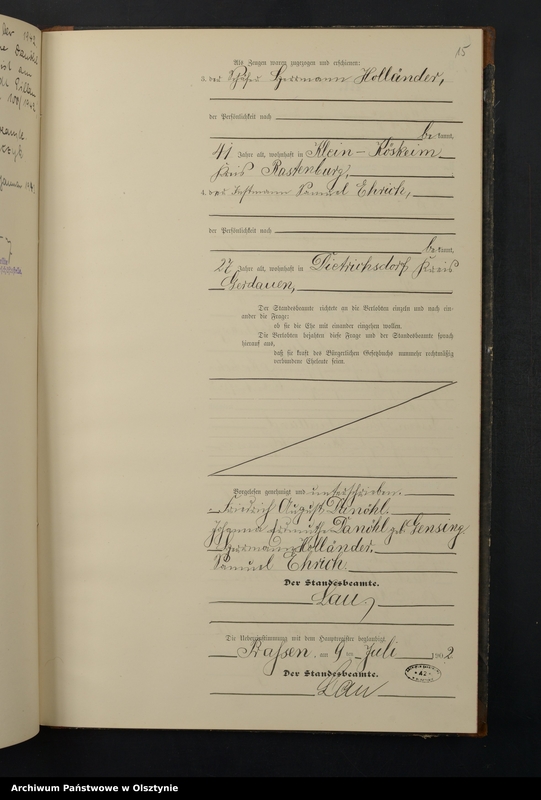 15
Als Zeugen waren zugezogen und erschienen:
3. der Schäfer Herrmann Holländer,
der Persönlichkeit nach
be kannt,
41 Jahre alt, wohnhaft in Klein-Köskeim
Kreis Rastenburg;
4. der Instmann Samuel Ehrich,
der Persönlichkeit nach
be kannt,
27 Jahre alt, wohnhaft in Dietrichsdorf Kreis
Gerdauen,
Der Standesbeamte richtete an die Verlobten einzeln und nach ein-
ander die Frage:
ob sie die Ehe mit einander eingehen wollen.
Die Verlobten bejahten diese Frage und der Standesbeamte sprach
hierauf aus,
daß sie kraft des Bürgerlichen Gesetzbuchs nunmehr rechtmäßig
verbundene Eheleute seien.
Vorgelesen, genehmigt und unterschrieben.
Friedrich August Danöhl.
Johanna Danöhl geb Gensing
Herrmann Holländer.
Samuel Ehrich.
Der Standesbeamte.
Lau
Die Uebereinstimmung mit dem Hauptregister beglaubigt.
am 9 ten Juli 1902
Der Standesbeamte.
Lau
Archiwum Państwowe w Olsztynie